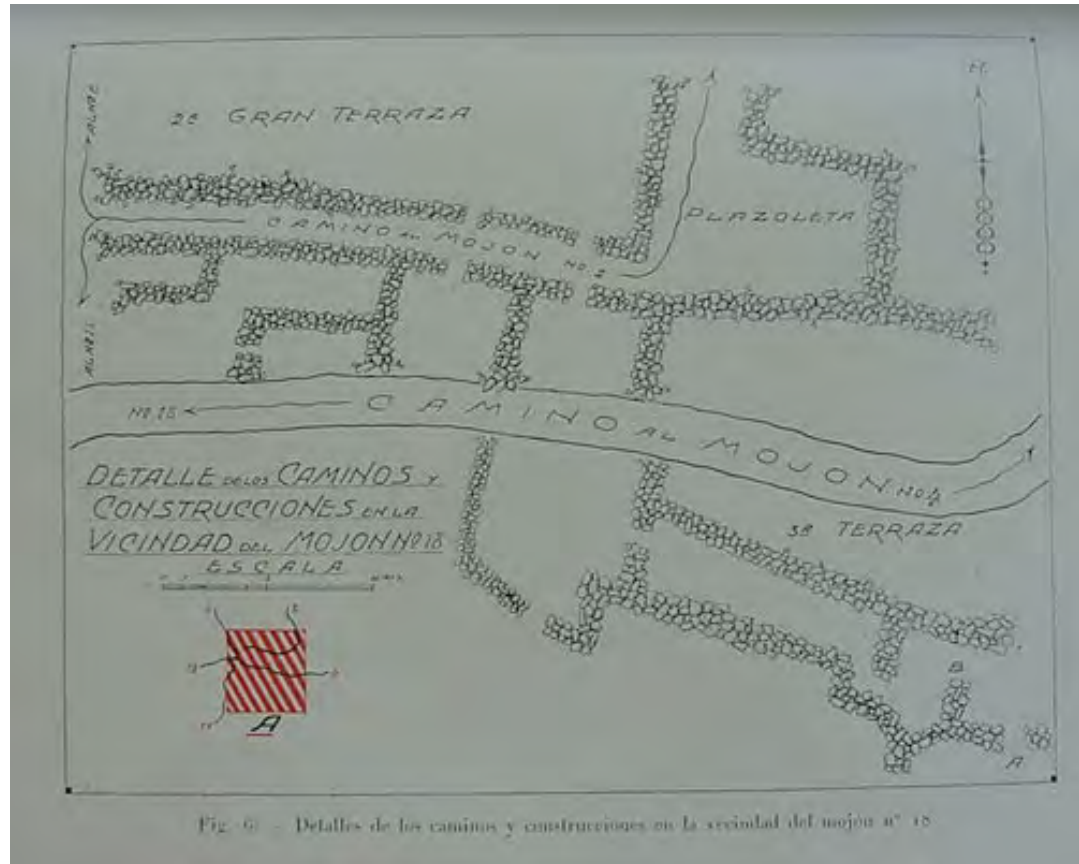 2ª GRAN TERRAZA
PLAZOLETA
CAMINO AL MOJON No. 2
No. 18
CAMINO AL MOJON No 4
3ª TERRAZA
DETALLE DE LOS CAMINOS Y
CONSTRUCCIONES EN LA
VICINDAD DEL MOJON Nº 18
ESCALA
A
B
A
Fig. 6. - Detalles de los caminos y construcciones en la vecindad del mojón nº 18